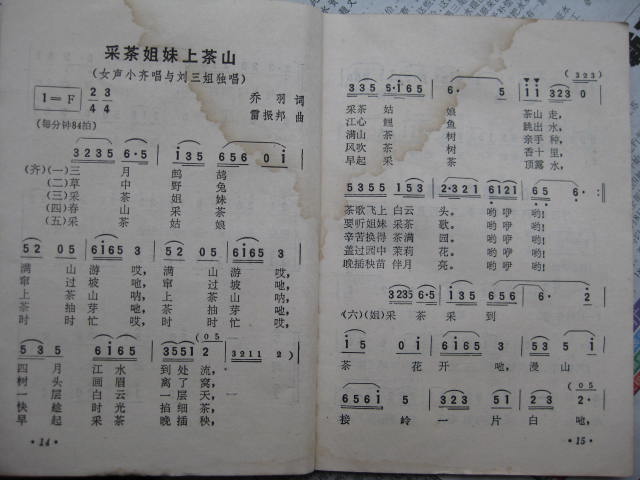 采茶姐妹上茶山
（女声小齐唱与刘三姐独唱）
1＝F 2/4 3/4
乔羽 词
（每分钟84拍）
雷振邦 曲
3235 6·5 i35 656 0i
（齐）（一）三 月 鹧 鸪
（二）草 中 野 兔
（三）采 茶 姐 妹
（四）春 山 采 茶
（五）采 茶 姑 娘
52 05 6i65 3 52 05 6i65 3
满 山 游 哎， 满 山 游 哎，
窜 过 坡 吔， 窜 过 坡 吔，
上 茶 山 呐， 上 茶 山 呐，
茶 抽 芽 吔， 茶 抽 芽 吔，
时 时 忙 哎， 时 时 忙 哎，
四 月 江 水 到处 流，
树 头 画 眉 离了 窝，
一 层 白 云 一层 天，
快 趁 时 光 掐细 茶，
早 起 采 茶 晚插 秧，
·14·
(323)
335 6·i65 3 335 6·i65 3 ii 323 0
采茶 姑 娘 茶山 走，
江心 鲤 鱼 跳出 水，
满山 茶 树 亲手 种，
风吹 茶 树 香十 里，
早起 采 茶 顶露 水，
茶歌 飞上 白云 头。 哟 咿 哟！
要听 姐妹 采茶 歌。 哟 咿 哟！
辛苦 换得 茶满 园。 哟 咿 哟！
盖过 园中 茉莉 花。 哟 咿 哟！
晚插 秧苗 伴月 亮。 哟 咿 哟！
3235 6·5 i35 656 6· 2
（六）（姐）采 茶 采 到
茶 花 开 吔，漫 山
(05)
接 岭 一 片 白 吔，
·15·